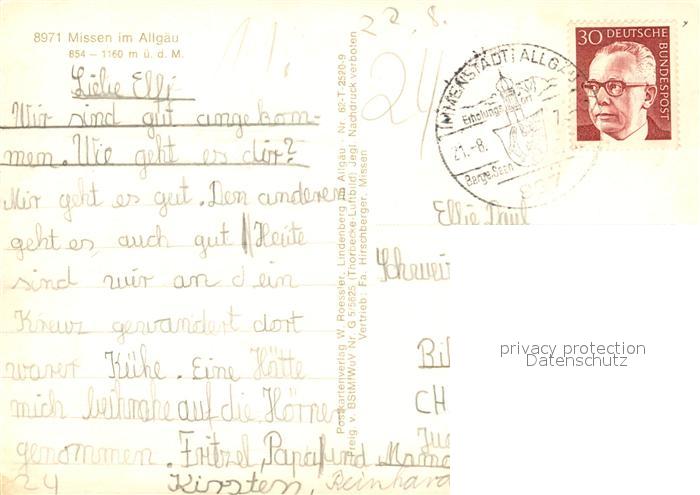 8971 Missen im Allgäu
854 – 1160 m ü. d. M.
22. 8.
11.
24
Liebe Elli
Wir sind gut angekom-
men. Wie geht es dir?
Mir geht es gut. Den anderem
geht es auch gut Heute
sind wir an d ein
Kreuz gewandert dort
waren Kühe. Eine Hätte
mich beihnahe auf die Hörner
genommen. Fritzel, Papa und Mama
24 Kirsten, Reinhard
Postkartenverlag W. Roessler, Lindenberg im Allgäu - Nr. 82-T 2520-9
freig. v. BStMfWuV Nr. G 5/5625 (Thorbecke-Luftbild) Jegl. Nachdruck verboten
Vertrieb: Fa. Hirschberger, Missen
IMMENSTADT I ALLGÄU
Erholungsort
21.-8.
Berge. Seen
897
30 DEUTSCHE
BUNDESPOST
Ellie Paul
Schwei
Bi
CH
privacy protection
Datenschutz